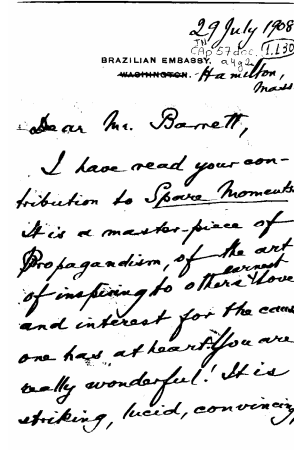 29 July 1908
CAp 57 doc. 1.130
a4g2
BRAZILIAN EMBASSY.
WASHINGTON. Hamilton,
Mass
Dear Mr. Barrett,
I have read your con-
tribution to Spare Moments.
It is a master-piece of
Propagandism, of the art
of inspiring to others earnest love
and interest for the cause
one has at heart. You are
really wonderful! It is
striking, lucid, convincing,